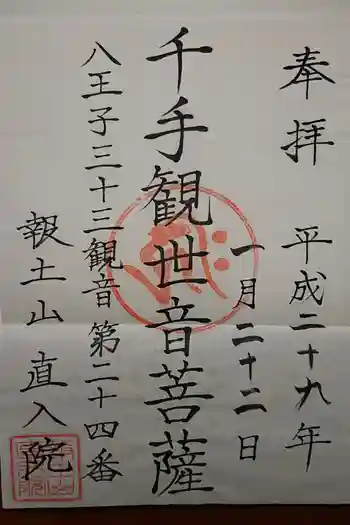 奉拝 平成二十九年
一月二十二日
千手観世音菩薩
八王子三十三観音第二十四番
報土山直入院